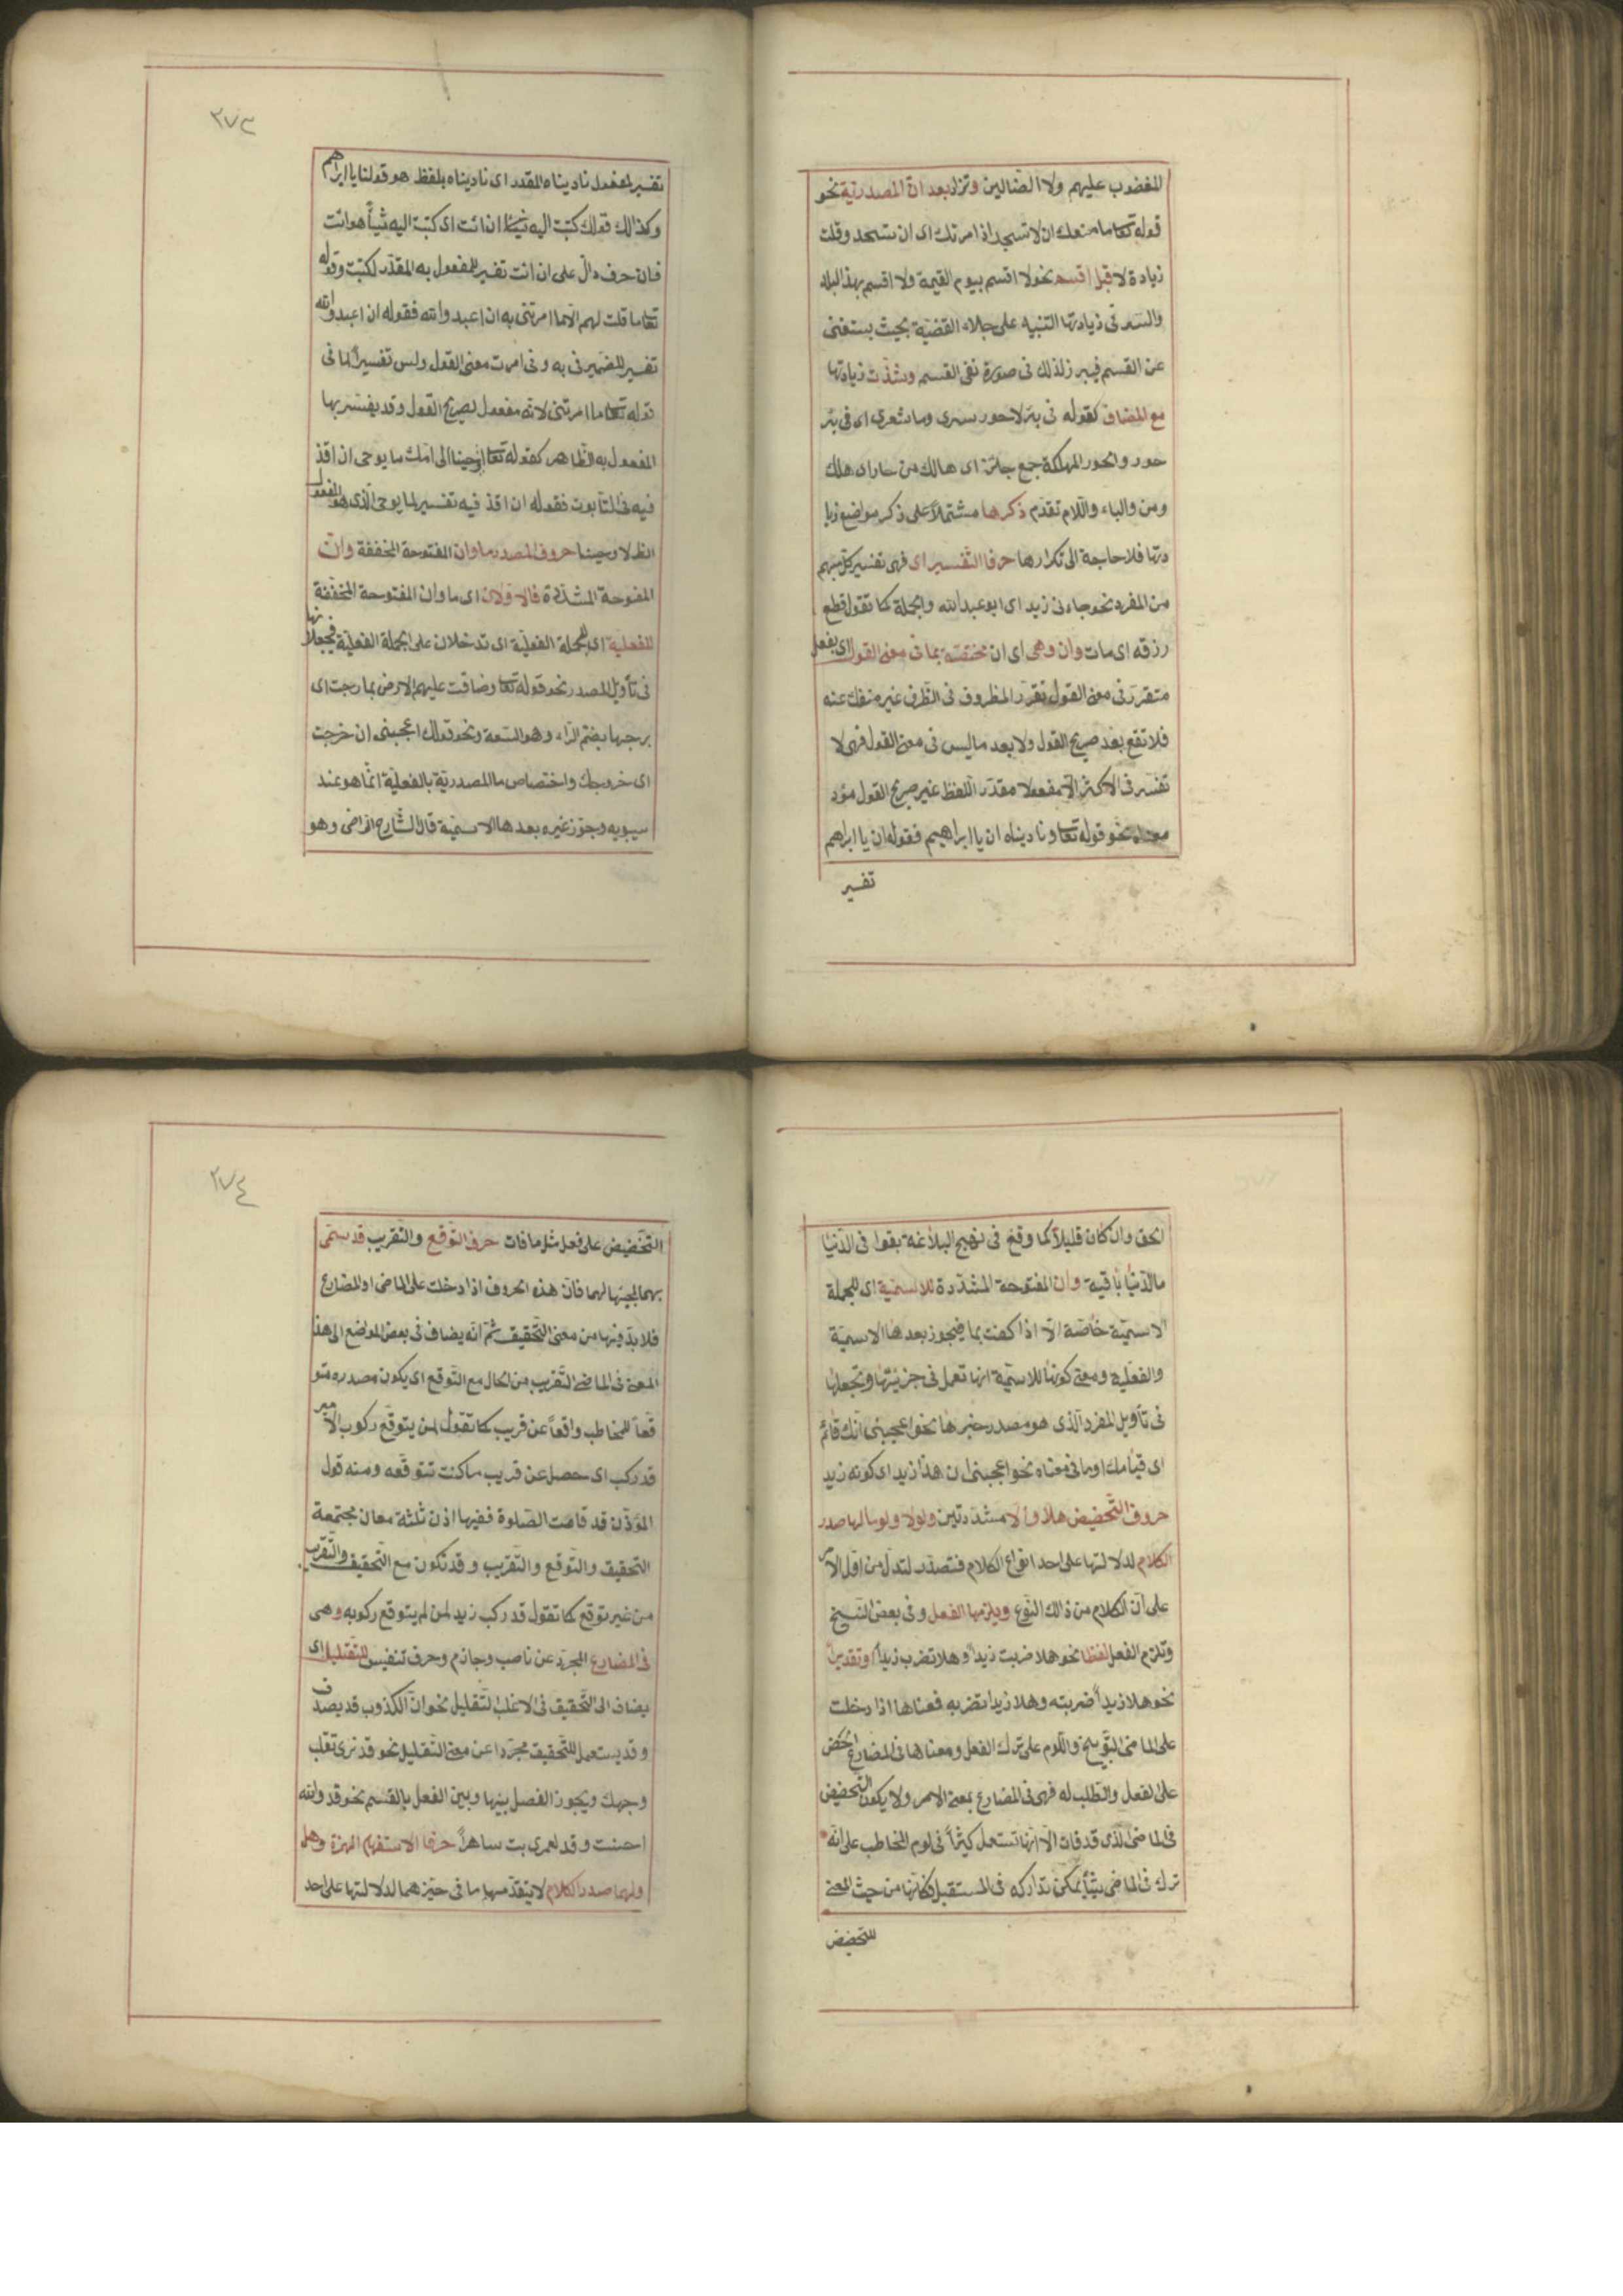 المغضوب عليهم ولا الضالين وتزاد بعد ان المصدرية نحو
قوله تعا ما منعك ان لا تسجد اذ امرتك اى ان تسجد وقلت
زيادة لا قبل اقسم نحو لا اقسم بيوم القيمة ولا اقسم بهذا البلد
والسر فى زيادتها التنبيه على جلاء القضية بحيث يستغنى
عن القسم فيبرز لذلك فى صورة نفى القسم وشذت زيادتها
مع المضاف كقوله فى بئر لا حور سرى وما شعرى اى فى بئر
حور والحور المهلكة جمع حائر اى هالك من حار اى هلك
ومن والباء واللام تقدم ذكرها مشتملا على ذكر مواضع زيا
دتها فلا حاجة الى تكرارها حرفا التفسير اى فهى تفسير كل مبهم
من المفرد نحو جاءنى زيد اى ابو عبد الله والجملة كما تقول قطع
رزقه اى مات وان وهى اى ان مختصة بما فى معنى القول اى بفعل
متقرر فى معنى القول تقرر المظروف فى الظرف غير منفك عنه
فلا تقع بعد صريح القول ولا بعد ما ليس فى معنى القول فهى لا
تفسر فى الاكثر الا مفعولا مقدر اللفظ غير صريح القول مؤد
معناه نحو قوله تعا وناديناه ان يا ابراهيم فقوله ان يا ابراهيم
تفسير
٢٧٣
تفسير لمفعول ناديناه المقدر اى ناديناه بلفظ هو قولنا يا ابراهيم
وكذالك قولك كتبت اليه ان ائت اى كتبت اليه شيأ هو ائت
فان حرف دال على ان ائت تفسير للمفعول به المقدر لكتبت وقوله
تعا ما قلت لهم الا ما امرتنى به ان اعبدوا الله فقوله ان اعبدوا الله
تفسير للضمير فى به وفى امرت معنى القول وليس تفسيرا لما فى
قوله تعا ما امرتنى لانه مفعول لصريح القول وقد يفسر بها
المفعول به الظاهر كقوله تعا اوحينا الى امك ما يوحى ان اقذ
فيه فى التابوت فقوله ان اقذ فيه تفسير لما يوحى الذى هو المفعول
الظ لاوحينا حروف المصدر ما وان المفتوحة المخففة وان
المفتوحة المشددة فالاولان اى ما وان المفتوحة المخففة
للفعلية اى للجملة الفعلية اى تدخلان على الجملة الفعلية فيجعلانها
فى تأويل المصدر نحو قوله تعا وضاقت عليهم الارض بما رحبت اى
برحبها بضم الراء وهو السعة ونحو قولك اعجبنى ان خرجت
اى خروجك واختصاص ما المصدرية بالفعلية انما هو عند
سيبويه وجوز غيره بعدها الاسمية قال الشارح الرضى وهو
الحق وان كان قليلا كما وقع فى نهج البلاغة بقوا فى الدنيا
ما الدنيا باقية وان المفتوحة المشددة للاسمية اى للجملة
الاسمية خاصة الا اذا كفت بما فيجوز بعدها الاسمية
والفعلية ومعنى كونها للاسمية انها تعمل فى جزئيتها وتجعلها
فى تأويل المفرد الذى هو مصدر خبرها نحو اعجبنى انك قائم
اى قيامك او ما فى معناه نحو اعجبنى ان هذا زيد اى كونه زيد
حروف التحضيض هلا والا مشددتين ولولا ولوما لها صدر
الكلام لدلالتها على احد انواع الكلام فتصدر لتدل من اول الامر
على ان الكلام من ذالك النوع ويلزمها الفعل وفى بعض النسخ
وتلزم الفعل لفظا نحو هلا ضربت زيدا وهلا تضرب زيدا وتقديرا
نحو هلا زيدا ضربته وهلا زيدا تضربه فمعناها اذا دخلت
على الماضى التوبيخ واللوم على ترك الفعل ومعناها فى المضارع الحض
على الفعل والطلب له فهى فى المضارع بمعنى الامر ولا يكون التحضيض
فى الماضى الذى قد فات الا انها تستعمل كثيرا فى لوم المخاطب على انه
ترك فى الماضى شيأ يمكن تداركه فى المستقبل فكانها من حيث المعنى
للتحضيض
٢٧٤
التحضيض على فعل مثل ما فات حرف التوقع والتقريب قد سمى
بهما لمجيئها لهما فان هذه الحروف اذا دخلت على الماضى او المضارع
فلا بد فيها من معنى التحقيق ثم انه يضاف فى بعض المواضع الى هذا
المعنى فى الماضى التقريب من الحال مع التوقع اى يكون مصدره متو
قعا للمخاطب واقعا عن قريب كما تقول لمن يتوقع ركوب الامير
قد ركب اى حصل عن قريب ما كنت تتوقعه ومنه قول
المؤذن قد قامت الصلوة ففيها اذن ثلثة معان مجتمعة
التحقيق والتوقع والتقريب وقد تكون مع التحقيق والتقريب
من غير توقع كما تقول قد ركب زيد لمن لم يتوقع ركوبه وهى
فى المضارع المجرد عن ناصب وجازم وحرف تنفيس للتقليل اى
يضاف الى التحقيق فى الاغلب التقليل نحو ان الكذوب قد يصدف
وقد يستعمل للتحقيق مجردا عن معنى التقليل نحو قد نرى تقلب
وجهك ويجوز الفصل بينها وبين الفعل بالقسم نحو قد والله
احسنت وقد لعمرى بت ساهرا حرفا الاستفهام الهمزة وهل
ولهما صدر الكلام لا يتقدمهما ما فى حيزهما لدلالتها على احد